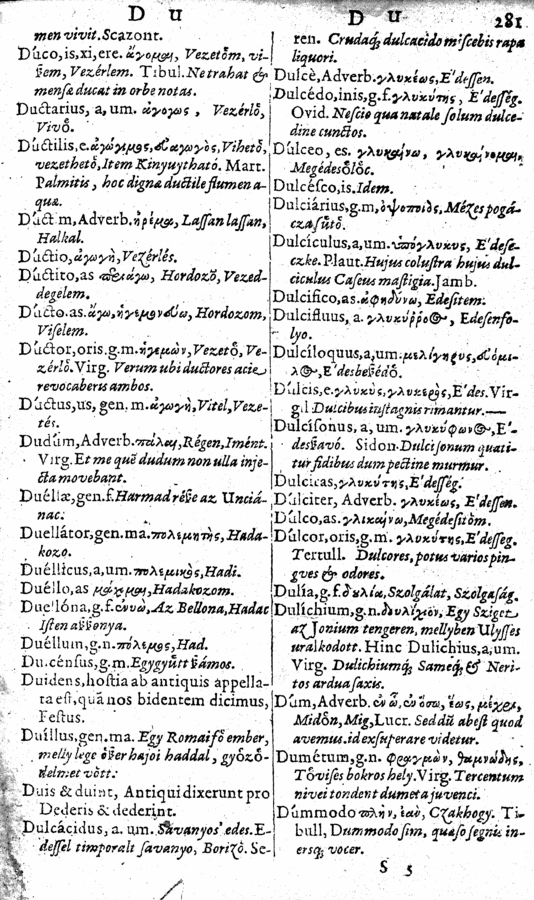 D U
men vivit. Scazont.
Dúco, is, xi, ere. ἄγομαι, Vezetȍm, vi-
ſem, Vezérlem. Tibul. Ne trahat &
menſa ducat in orbe notas.
Ductarius, a, um. ἀγωγος, Vezérlȍ,
Vivȍ.
Dúctilis, e. Vihetȍ,
vezethetȍ, Item Kinyuytható. Mart.
Palmitis, hoc dignæ ductile flumen a-
quæ.
Adverb. ἠρέμα, Laſſan laſſan,
Halkal.
Dúctio, ἀγωγὴ, Vezérlés.
Dúctito, as Hordozȍ, Vezed-
degelem.
Dúcto. as. ἄγω, ἡγεμονεύω, Hordozom,
Viſelem.
Dúctor, oris, g. m. ἡγεμὼν, Vezetȍ, Ve-
zérlȍ. Virg. Verum ubi ductores acie
revocaberis ambos.
Dúctus, us, gen. m. ἀγωγὴ, Vitel, Veze-
tés.
Dudúm, Adverb. πάλαι, Régen, Imént.
Virg. Et me quē dudum non ulla inje-
cta movebant.
Duéllæ, gen. f. Harmad réſe az Unciá-
nac.
Duellátor, gen. ma. πολεμητὴς, Hada-
kozo.
Duéllicus, a, um. πολεμικὸς, Hadi.
Duéllo, as μάχομαι, Hadakozom.
Duellóna, g. f. ἐνυώ, Az Bellona, Hadac
Iſten aſſonya.
Duéllum, g. n. πόλεμος, Had.
Ducénſus, g. m. Egygyütt ſámos.
Duidens, hoſtia ab antiquis appella-
ta eſt, quā nos bidentem dicimus,
Feſtus.
Duíllus, gen. ma. Egy Romai fȍ ember,
melly lege hajoi haddal, gyȍzȍ-
delmet vȍtt.
Duis & duint, Antiqui dixerunt pro
Dederis & dederint.
Dulcácidus, a. um. Savanyos' edes. E-
deſſel timporált ſavanyo, Borizȍ. Se-
D U 281
ren. Crudaq; dulcacido miſcebis rapa
liquori.
Dulcè, Adverb. γλυκέως, E'deſſen.
Dulcédo, inis, g. f. γλυκύτης, E'deſſég.
Ovid. Neſcio qua natale ſolum dulce-
dine cunctos.
Dúlceo, es. γλυκαίνω, γλυκαίνομαι,
Megédesȍlȍc.
Dulcéſco, is. Idem.
Dulciárius, g. m, ὀψοποιὸς, Mézes pogá-
cza ſutȍ.
Dulcículus, a, um. ὑπόγλυκυς, E'deſe-
czke. Plaut. Hujus coluſtra hujus dul-
ciculus Caſeus maſtigia. Jamb.
Dulcifico, as. ἀφηδύνω, Edeſitem.
Dulcifluus, a. γλυκύῤῥοος, Edeſenfo-
lyo.
Dulcíloquus, a, um. μελίγηρυς,
E'desbeſédȍ.
Dúlcis, e. γλυκὺς, γλυκερὸς, E'des. Vir-
gil Dulcibus in ſtagnis rimantur.—
Dulcíſonus, a, um. γλυκύφωνος, E'-
desſavó. Sidon. Dulciſonum quati-
tur fidibus dum pectine murmur.
Dulcitas, γλυκύτης, E'deſſég.
Dúlciter, Adverb. γλυκέως, E'deſſen.
Dúlco, as. γλικαίνω, Megédeſitȍm.
Dúlcor, oris, g. m. γλυκύτης, E'deſſeg.
Tertull. Dulcores, potus varios pin-
gves & odores.
Dulía, g. f. δουλία, Szolgálat, Szolgaſág.
Dulíchium, g. n. δουλίχιον, Egy Sziget
az Jonium tengeren, mellyben Ulyſſes
uralkodott. Hinc Dulichius, a, um.
Virg. Dulichiumq; Sameq; & Neri-
tos ardua ſaxis.
Dúm, Adverb. ἐν ᾧ, ἐν ὅσῳ, ἕως, μέχρι,
Midȍn, Mig, Lucr. Sed dū abeſt quod
avemus. id exſuperare videtur.
Dumétum, g. n. φραγμὼν, θαμνώδης,
Tȍviſes bokros hely. Virg. Tercentum
nivei tondent dumeta juvenci.
Dúmmodo πλὴν, ἐὰν, Czakhogy. Ti-
bull, Dummodo ſim, quæſo ſegnis in-
ersq; vocer.
S 5